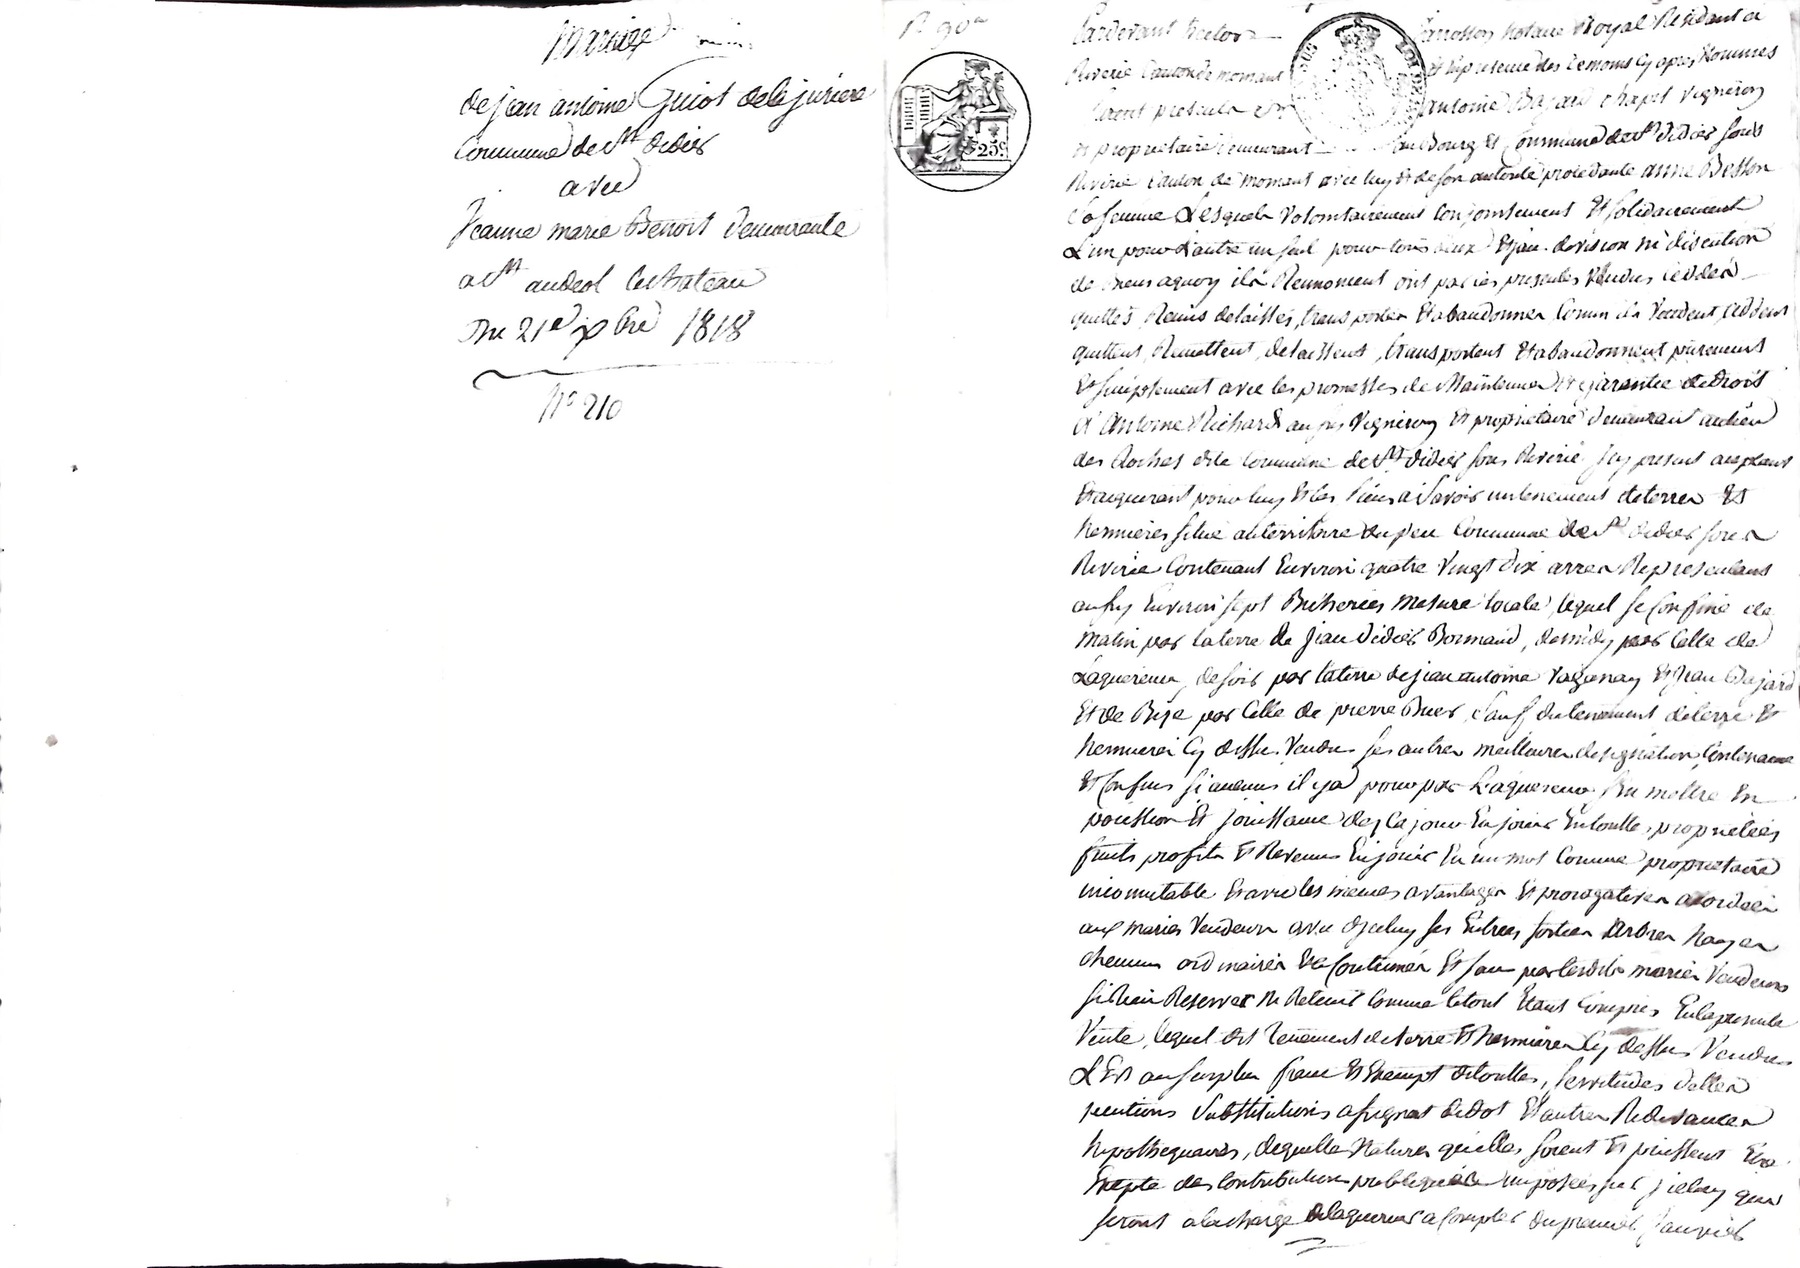 Mariage
de jean antoine Guiot de la juriere
Commune de St didier
avec
Jeanne marie Benoit demeurante
a St andeol le chateau
Du 21e xbre 1818
No 210
25c
Pardevant hector janosson Notaire Royal Residant a
Riverie Canton de mornant Et En presence des temoins Cy apres Nommes
furent presents antoine Bajard chapst vigneron
Et proprietaire demeurant au Bourg Et Commune de St didier sous
Riverie Canton de mornant avec luy Et de son autorité procedante anne Besson
sa femme Lesquels volontairement Conjointement Et solidairement
L'un pour L'autre un seul pour tous deux Et sans division ni discution
de biens aquoy ils Rennoncent ont par ces presentes vendus ceddes
quittés Remis delaissés, transportes Et abandonnes Comm ils Vendent, ceddent
quittent, Remettent, delaissent, transportent Et abandonnent purement
Et simplement avec les promesses de Maintenue Et garantie de droit
a Antoine Richard aussy Vigneron Et proprietaire demeurant au lieu
des Roches dite Commune de St didier sous Riverie Icy present aceptant
Et aquerant pour luy Et les siens a Savoir un tenement de terres Et
hermieres situé au territoire du peu Commune de St didier sous
Riverie Contenant Environ quatre vingt dix arres Representant
aussy Environ sept Bicherées Mesure locale, lequel se Confine de
matin par la terre de jean didier Bonnand, de midy par Celle de
L'aquereur, de soir par la terre de jean antoine Vaganay Et jean Bajard
Et de Bize par Celle de pierre Buer, sauf du tenement de terre Et
hermieres Cy dessus Vendu ses autres meilleures designation, Contenance
Et Confins si aucuns il y a pour par L'aquereur s'en mettre En
poession Et jouissance des Ce jour En jouir En toutte, proprietées
fruits profits Et Revenus En jouir En un mot Comme proprietaire
incomutable Et avec les memes avantages Et prorogatives acordées
aux maries Vendeurs avec d'jceluy ses Entrees sorties Arbres hayes
chemins ordinaires Et acoutumés Et sans par lesdits maries Vendeurs
si Rien Reserver ni Retenir Comme le tout Etant Compris En la presente
Vente, lequel dit tenement de terre Et hermieres Cy dessus Vendus
L'Est au surplus franc Et Exempt de touttes, servitudes dettes
pentions Substitutions assignat de dot Et autres Redevances
hypothequaires, dequelle Natures quelles soient Et puissent Etre
Exepte des Contributions publiques imposées sur jceluy qui
seront a la charge de l'aquereur a Compter du premier Janvier